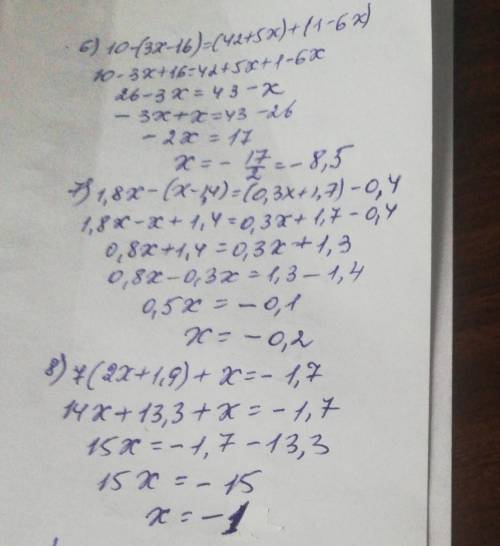 6) 10-(3x-16)=(42+5x)+(1-6x)
10-3x+16=42+5x+1-6x
26-3x=43-x
-3x+x=43-26
-2x=17
x=-17/2=-8,5
7) 1,8x-(x-1,4)=(0,3x+1,7)-0,4
1,8x-x+1,4=0,3x+1,7-0,4
0,8x+1,4=0,3x+1,3
0,8x-0,3x=1,3-1,4
0,5x=-0,1
x=-0,2
8) 7(2x+1,9)+x=-1,7
14x+13,3+x=-1,7
15x=-1,7-13,3
15x=-15
x=-1